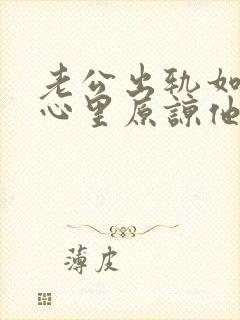 老公出轨如
心里原谅他
薄皮